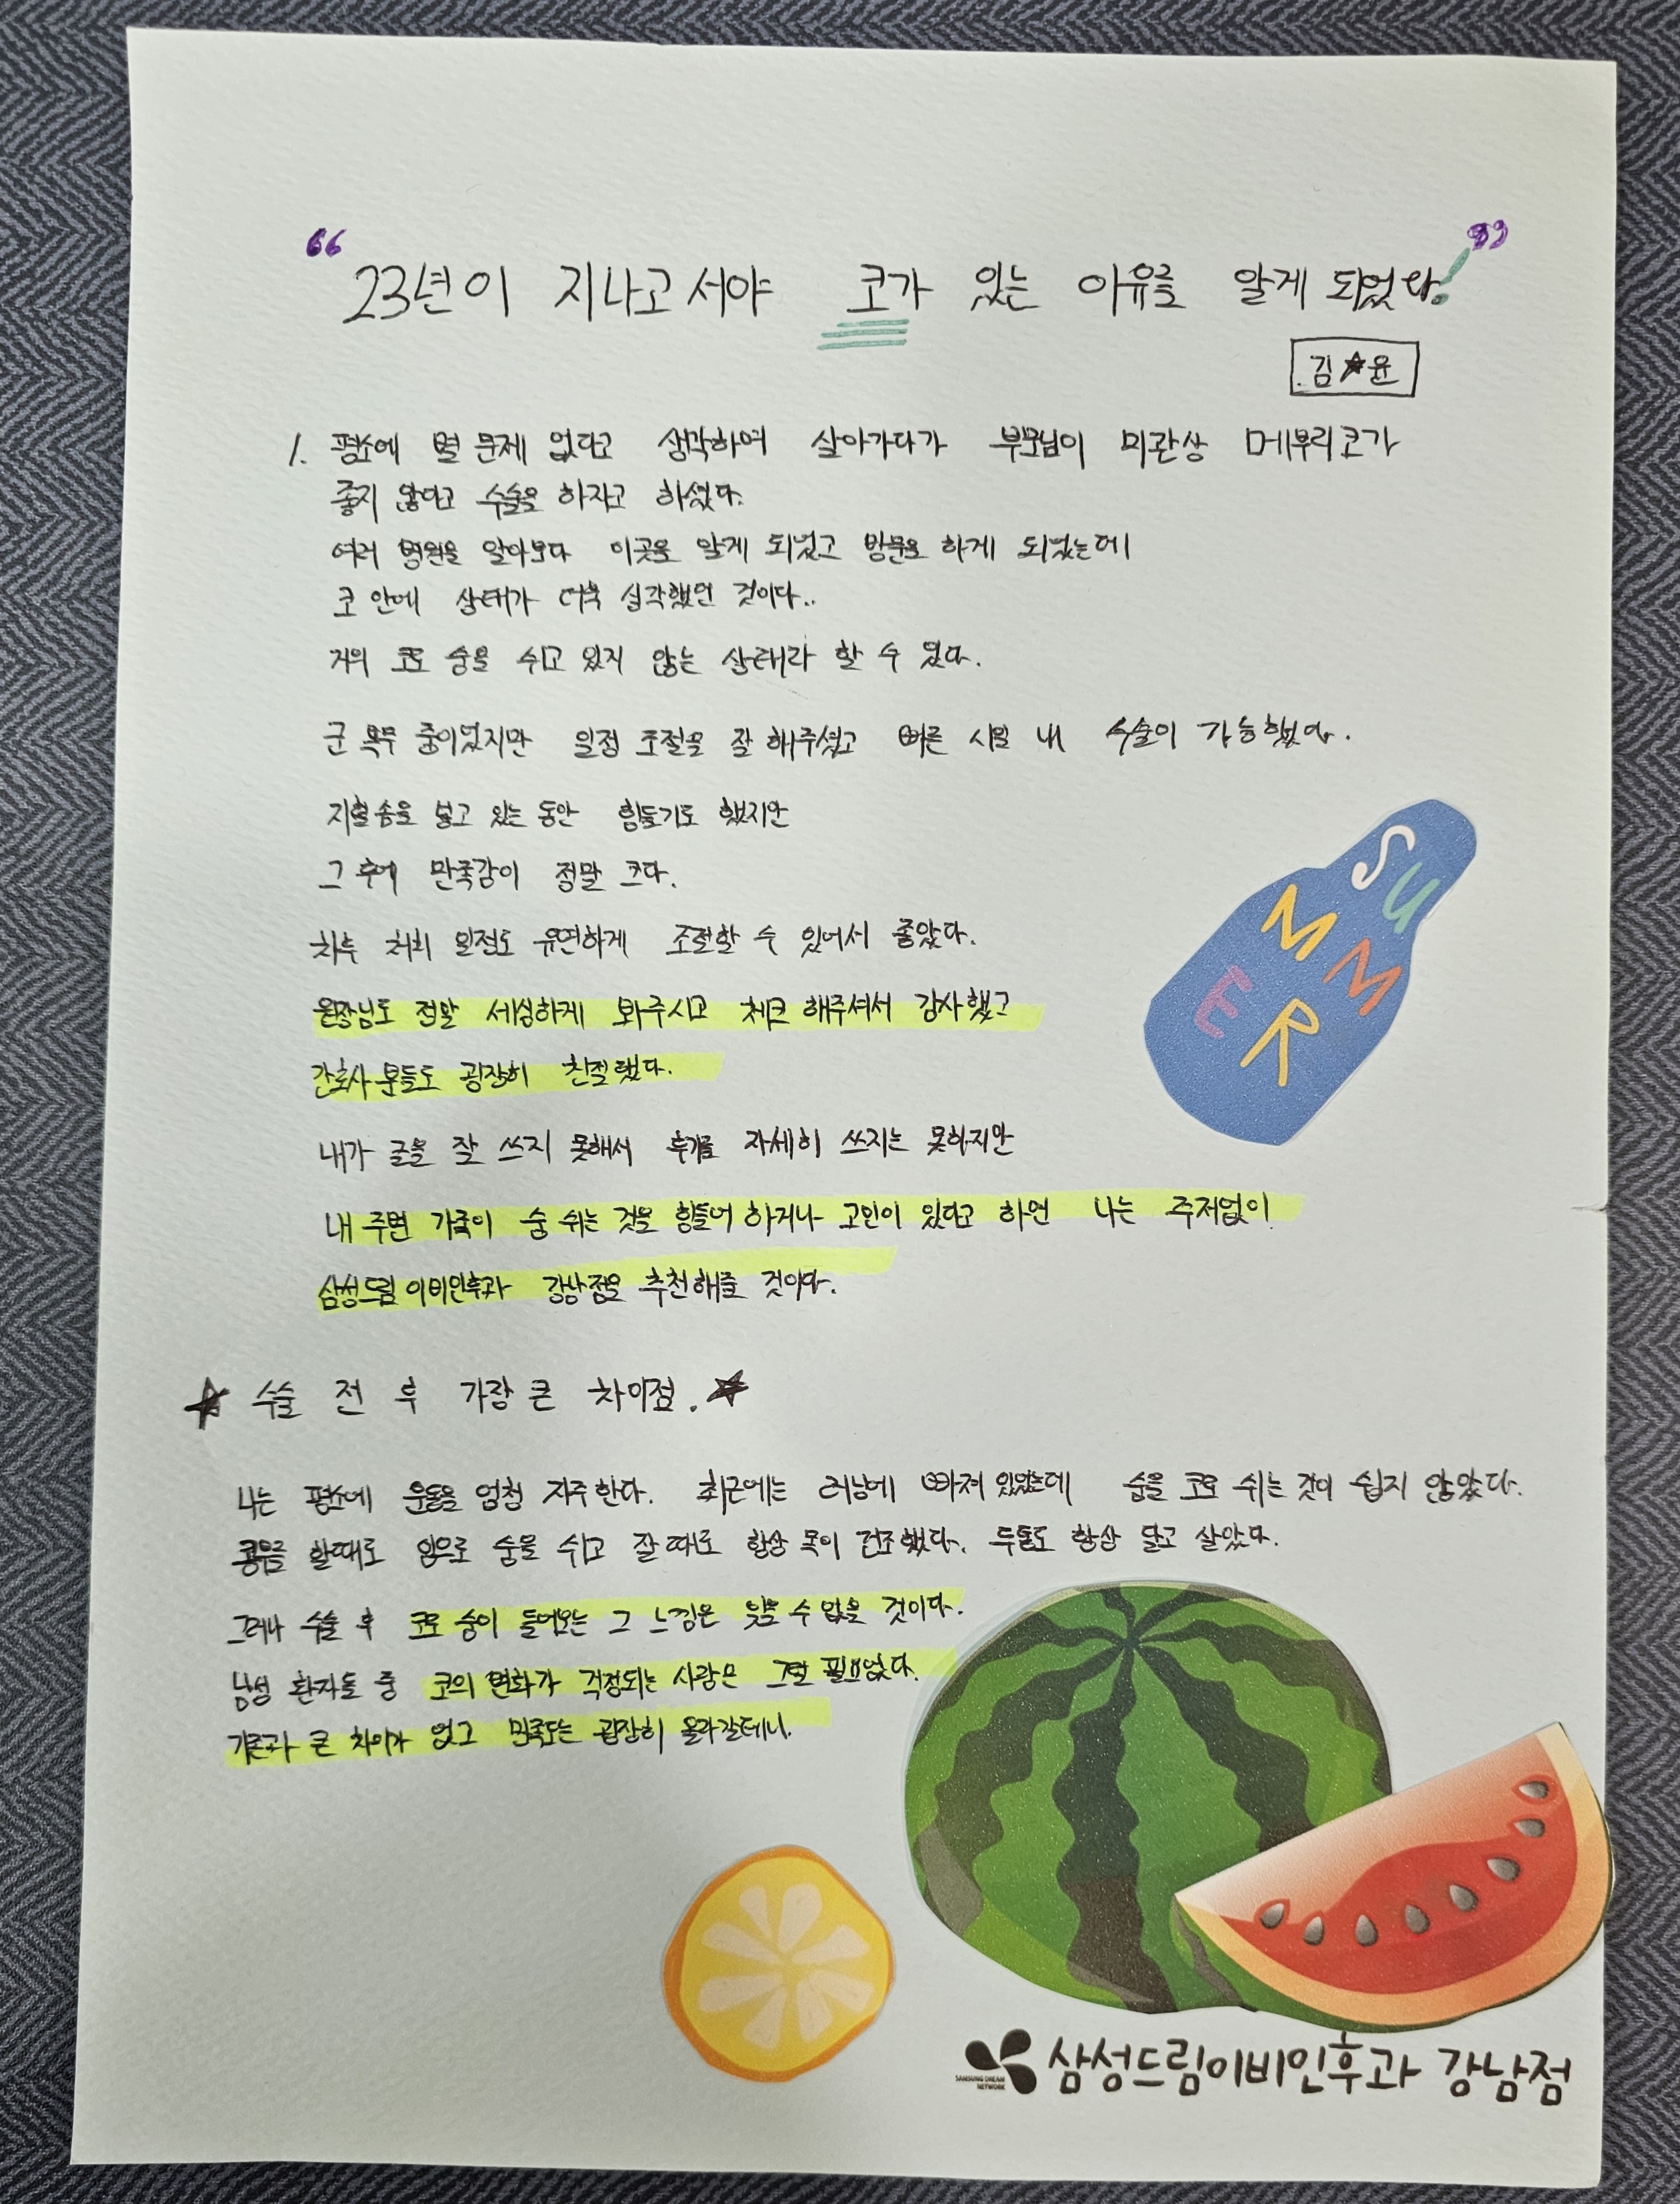 “23년이 지나고서야 코가 있는 이유를 알게 되었다!”
김★윤
1. 평소에 별 문제 없다고 생각하며 살아가다가 부모님이 미관상 메부리코가
좋지 않다고 수술을 하자고 하셨다.
여러 병원을 알아보다 이곳을 알게 되었고 방문을 하게 되었는데
코 안에 상태가 더욱 심각했던 것이다..
거의 코로 숨을 쉬고 있지 않는 상태라 할 수 있다.
군 복무 중이었지만 일정 조절을 잘 해주셨고 빠른 시일 내 수술이 가능했다.
지혈솜을 넣고 있는 동안 힘들기도 했지만
그 후에 만족감이 정말 크다.
차후 처치 일정도 유연하게 조절할 수 있어서 좋았다.
원장님도 정말 세심하게 봐주시고 체크 해주셔서 감사했고
간호사분들도 굉장히 친절했다.
내가 글을 잘 쓰지 못해서 후기를 자세히 쓰지는 못하지만
내 주변 가족이 숨 쉬는 것을 힘들어 하거나 고민이 있다고 하면 나는 주저없이
삼성드림이비인후과 강남점을 추천해줄 것이다.
★ 수술 전 후 가장 큰 차이점. ★
나는 평소에 운동을 엄청 자주한다. 최근에는 러닝에 빠져있었는데 숨을 코로 쉬는 것이 쉽지 않았다.
운동을 할때도 입으로 숨을 쉬고 잘때도 항상 목이 건조했다. 두통도 항상 달고 살았다.
그러나 수술 후 코로 숨이 들어오는 그 느낌은 잊을 수 없을 것이다.
남성 환자들 중 코의 변화가 걱정되는 사람은 그럴 필요없다.
기존과 큰 차이가 없고 만족도는 굉장히 올라갈테니.
SUMMER
SAMSUNG DREAM NETWORK
삼성드림이비인후과 강남점